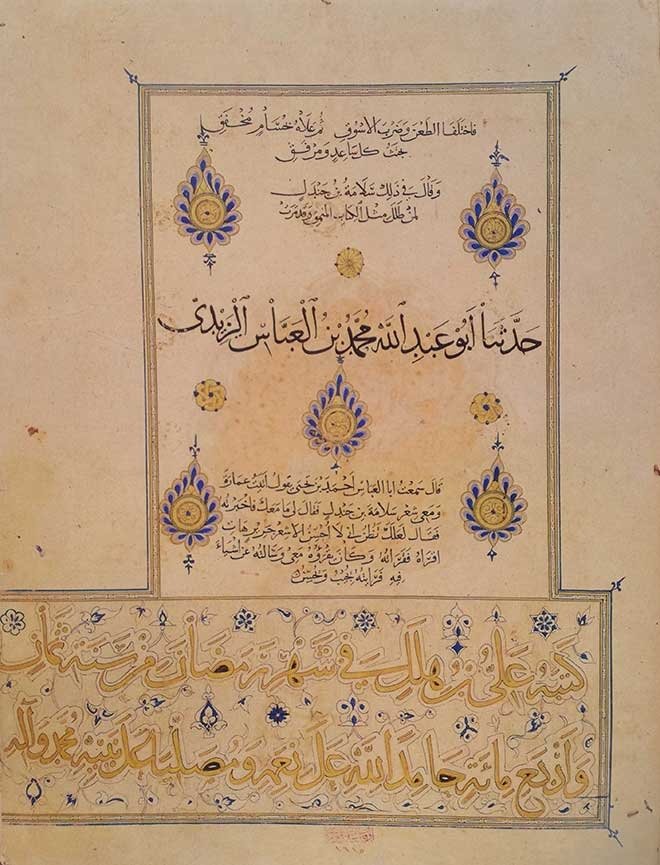 فاختلفا الطعن وضرب الاسوق ثم علاه بحسام مخفق
يجتث كل ساعد ومرفق
وقال في ذلك سلامة بن جندل
لمن طلل مثل الكتاب المنمق
حَدَّثَنَا أَبُو عَبْدِ اللَّهِ مُحَمَّدُ بْنُ الْعَبَّاسِ الْيَزِيدِيُّ
قال سمعت ابا العباس احمد بن يحيى يقول اتيت عمارة
ومعي شعر سلامة بن جندل فقال لي ما معك فاخبرته
فقال لعلك تظن اني لا احسن الا شعر جرير هات
اقراه فقراته وكان يقرؤه معي وسالته عن اشياء
فيه يجيب ويحسن
كتبه علي بن هلال في شهر رمضان من سنة ثمان
واربع مائة حامدا لله على نعمه ومصليا على نبيه محمد وآله